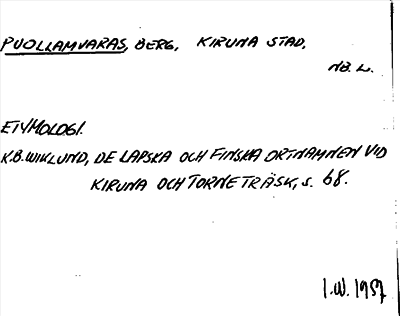 PUOLLAMVARAS, BERG, KIRUNA STAD,
NB. L.
ETYMOLOGI.
K.B. WIKLUND, DE LAPSKA OCH FINSKA ORTNAMNEN VID
KIRUNA OCH TORNETRÄSK, s. 68.
I.W. 1957